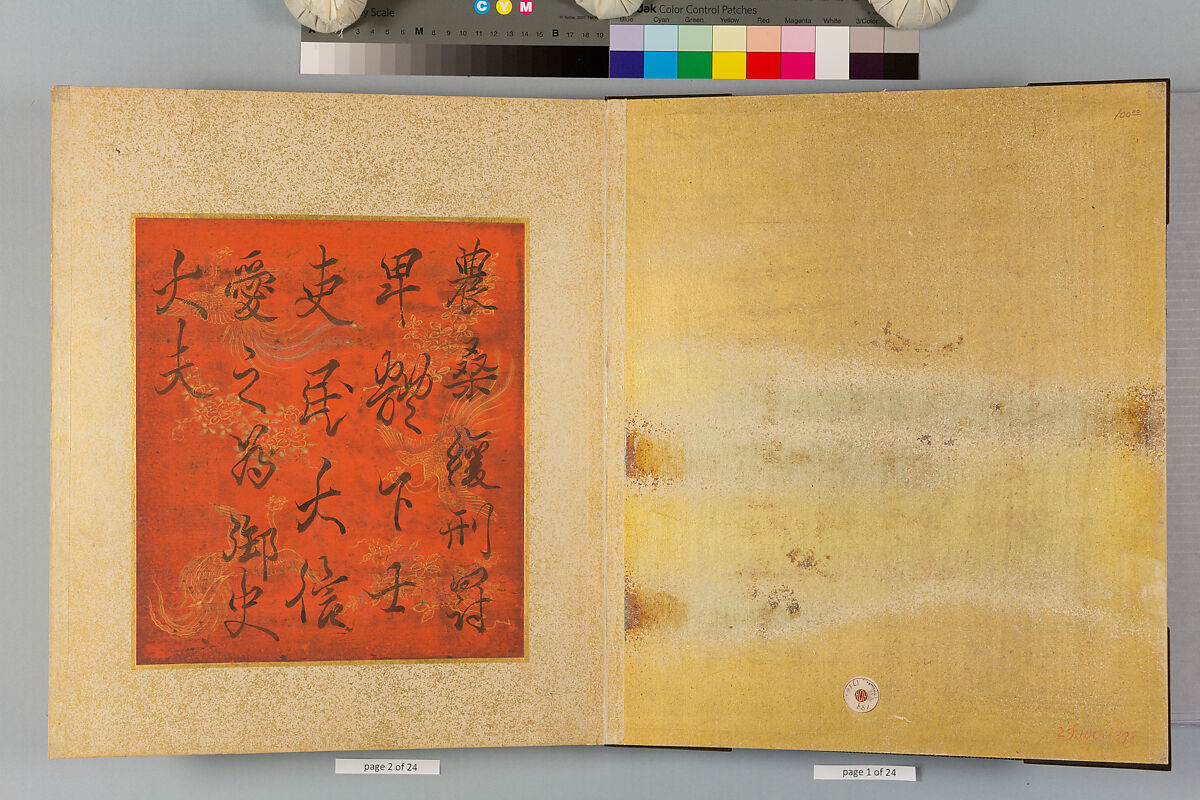 by Scale
C Y M
Kodak Color Control Patches
Blue Cyan Green Yellow Red Magenta White 3/Color
A 3 4 5 6 M 8 9 10 11 12 13 14 15 B 17 18 19
農桑緩刑罸
卑體下士
吏民大信
愛之為御史
大夫
100.00
page 2 of 24
page 1 of 24